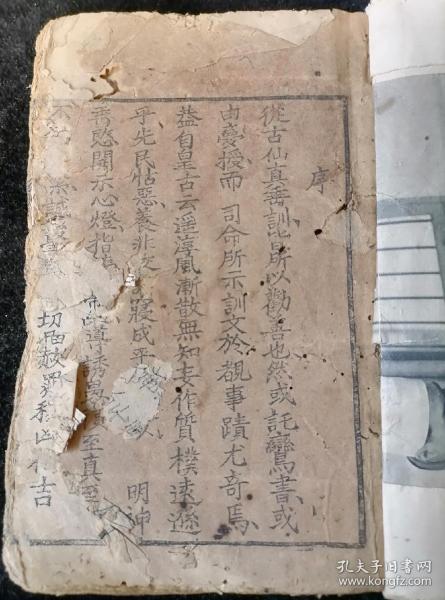 序
從古仙真垂訓皆所以勸善也然或託鸞書或
由夢授而 司命所示訓文於覩事蹟尤奇焉
葢自皇古云遥淳風漸散無知妄作質樸遠遜
乎先民怙惡養非 寢成乎 明神
喬愍開示心燈指 導誘 至真至
誠 切指 凶 吉
孔夫子旧书网
www.kongfz.com